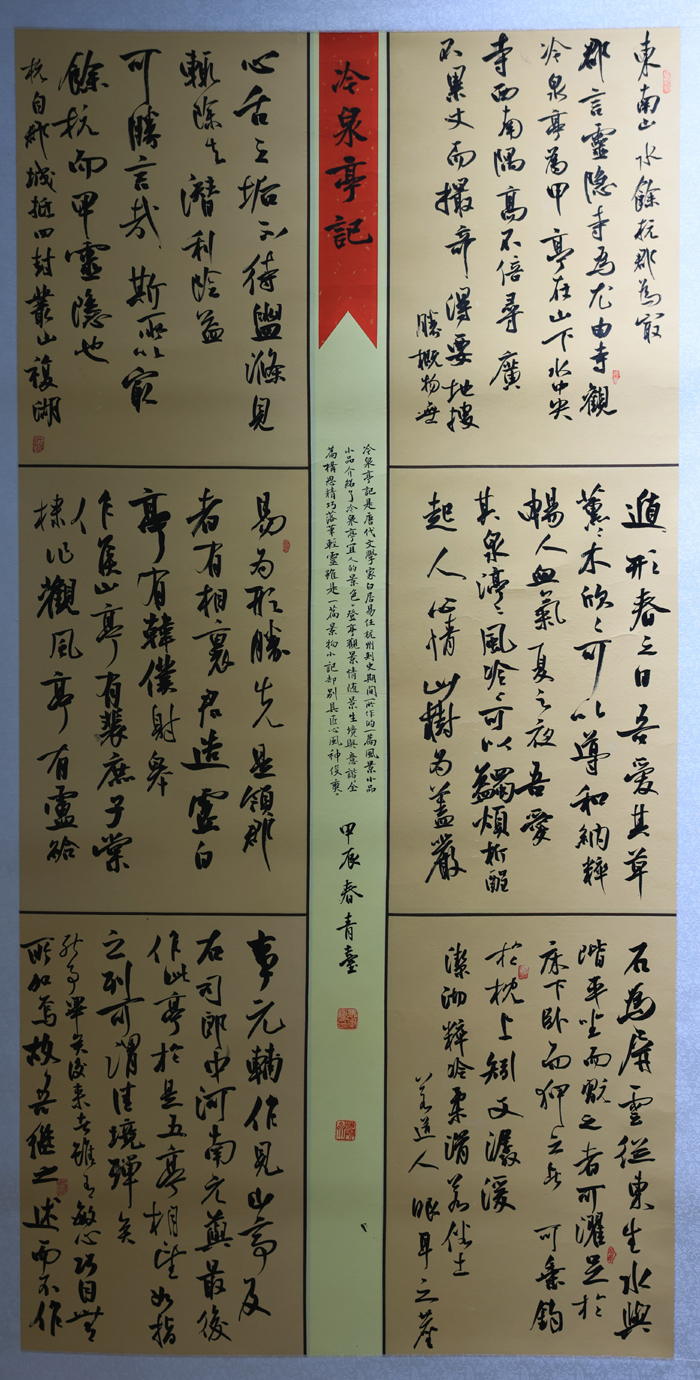 冷泉亭記
東南山水餘杭郡為最
郡言靈隱寺為尤由寺觀
冷泉亭為甲亭在山下水中央
寺西南隅高不倍尋廣
不累丈而撮奇得要地搜
勝概物無
遁形春之日吾愛其草
薰〻木欣〻可以導和納粹
暢人血氣夏之夜吾愛
其泉渟〻風泠〻可以蠲煩析酲
起人心情山樹為蓋巖
石為屏雲從東生水與
階平坐而翫之者可濯足於
床下臥而狎之者可垂釣
於枕上矧又潺湲
潔沏粹冷柔滑若俗士
若道人眼耳之塵
心舌之垢不待盥滌見
輒除去潛利陰益
可勝言哉斯所以最
餘杭而甲靈隱也
杭自郡城抵四封叢山複湖
易為形勝先是領郡
者有相裏君造虛白
亭有韓僕射皋
作候山亭有裴庶子棠
棣作觀風亭有盧給
事元輔作見山亭及
右司郎中河南元藇最後
作此亭於是五亭相望如指
之列可謂佳境殫矣
能事畢矣後來者雖有敏心巧目無
所加焉故吾繼之述而不作
冷泉亭記是唐代文學家白居易任杭州刺史期間所作的一篇風景小品
小品介紹了冷泉亭宜人的景色。登亭觀景情隨景生境與意諧全
篇構思精巧落筆輕靈雖是一篇景物小記却別具匠心風神俊爽。
甲辰春青臺